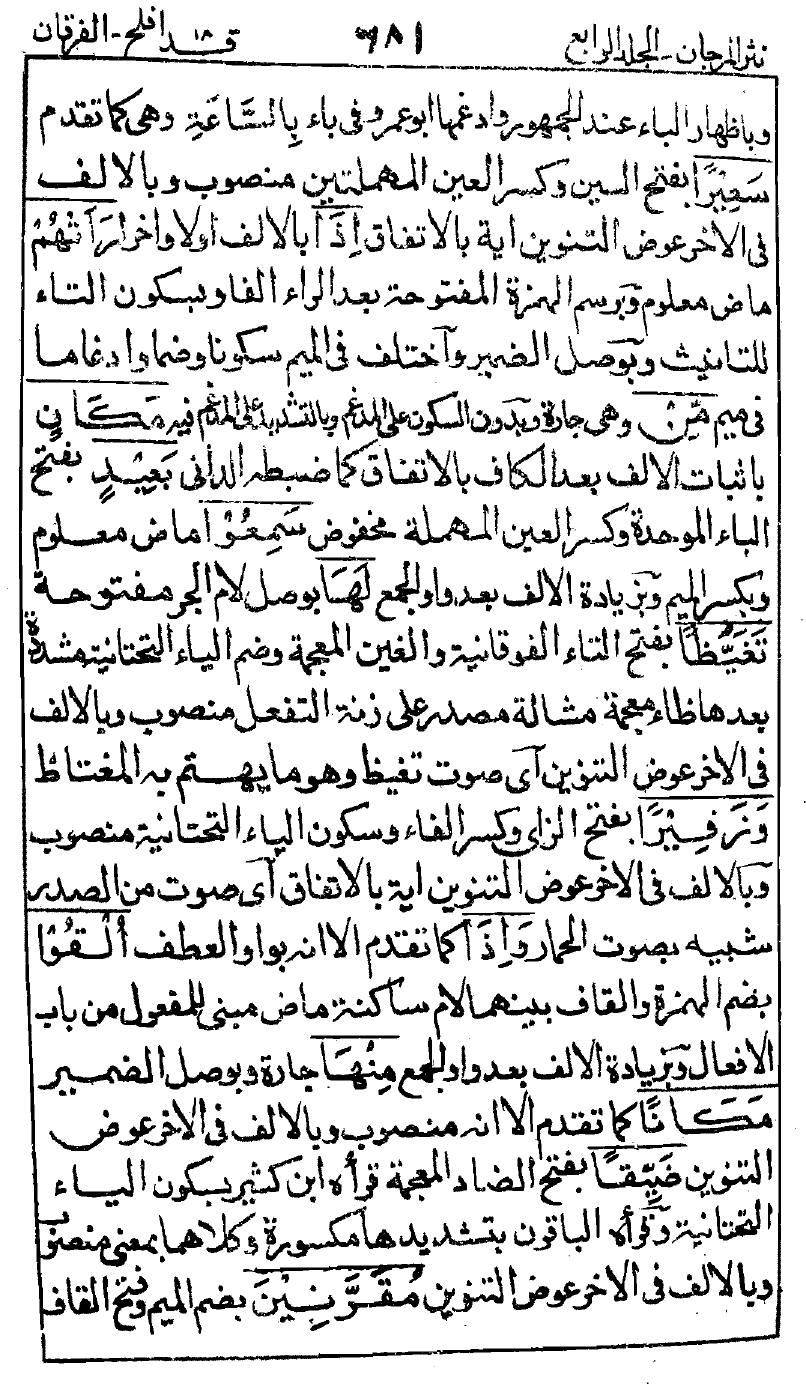 نثر المرجان - الجلد الرابع ٦٨١ قد افلح ١٨ - الفرقان
وباظهار الباء عند الجمهور وادغمها ابو عمرو فى باء بِالسَّاعَةِ وهى كما تقدم
سَعِيْرًا بفتح السين وكسر العين المهملتين منصوب وبالالف
فى الاخر عوض التنوين اية بالاتفاق اِذَا بالالف اولا واخرا رَاَتْهُمْ
ماض معلوم وَبرسم الهمزة المفتوحة بعد الراء الفا وبسكون التاء
للتانيث وبوصل الضمير وآختلف فى الميم سكونا وضما وادغاما
فى ميم مِّنْ وهى جارة وبدون السكون على المدغم وبالتشديد على المدغم فيه مَكَانٍ
باثبات الالف بعد الكاف بالاتفاق كما ضبطه الدانى بَعِيْدٍ بفتح
الباء الموحدة وكسر العين المهملة مخفوض سَمِعُوْا ماض معلوم
وبكسر الميم وَبزيادة الالف بعد واو الجمع لَهَا بوصل لام الجر مفتوحة
تَغَيُّظًا بفتح التاء الفوقانية والغين المعجمة وضم الياء التحتانية مشددة
بعدها ظاء معجمة مشالة مصدر على زنة التفعل منصوب وبالالف
فى الاخر عوض التنوين آى صوت تغيظ وهو ما يهتم به المغتاظ
وَزَفِيْرًا بفتح الزاى وكسر الفاء وسكون الياء التحتانية منصوب
وَبالالف فى الاخر عوض التنوين اية بالاتفاق آى صوت من الصدر
شبيه بصوت الحمار وَاِذَا كما تقدم الا انه بواو العطف اُلْقُوْا
بضم الهمزة والقاف بينهما لام ساكنة ماض مبنى للمفعول من باب
الافعال وَبزيادة الالف بعد واو الجمع مِنْهَا جارة وبوصل الضمير
مَكَانًا كما تقدم الا انه منصوب وبالالف فى الاخر عوض
التنوين ضَيِّقًا بفتح الضاد المعجمة قرأه ابن كثير بسكون الياء
التحتانية وَقرأه الباقون بتشديدها مكسورة وَكلاهما بمعنى منصوب
وبالالف فى الاخر عوض التنوين مُقَرَّنِيْنَ بضم الميم وفتح القاف